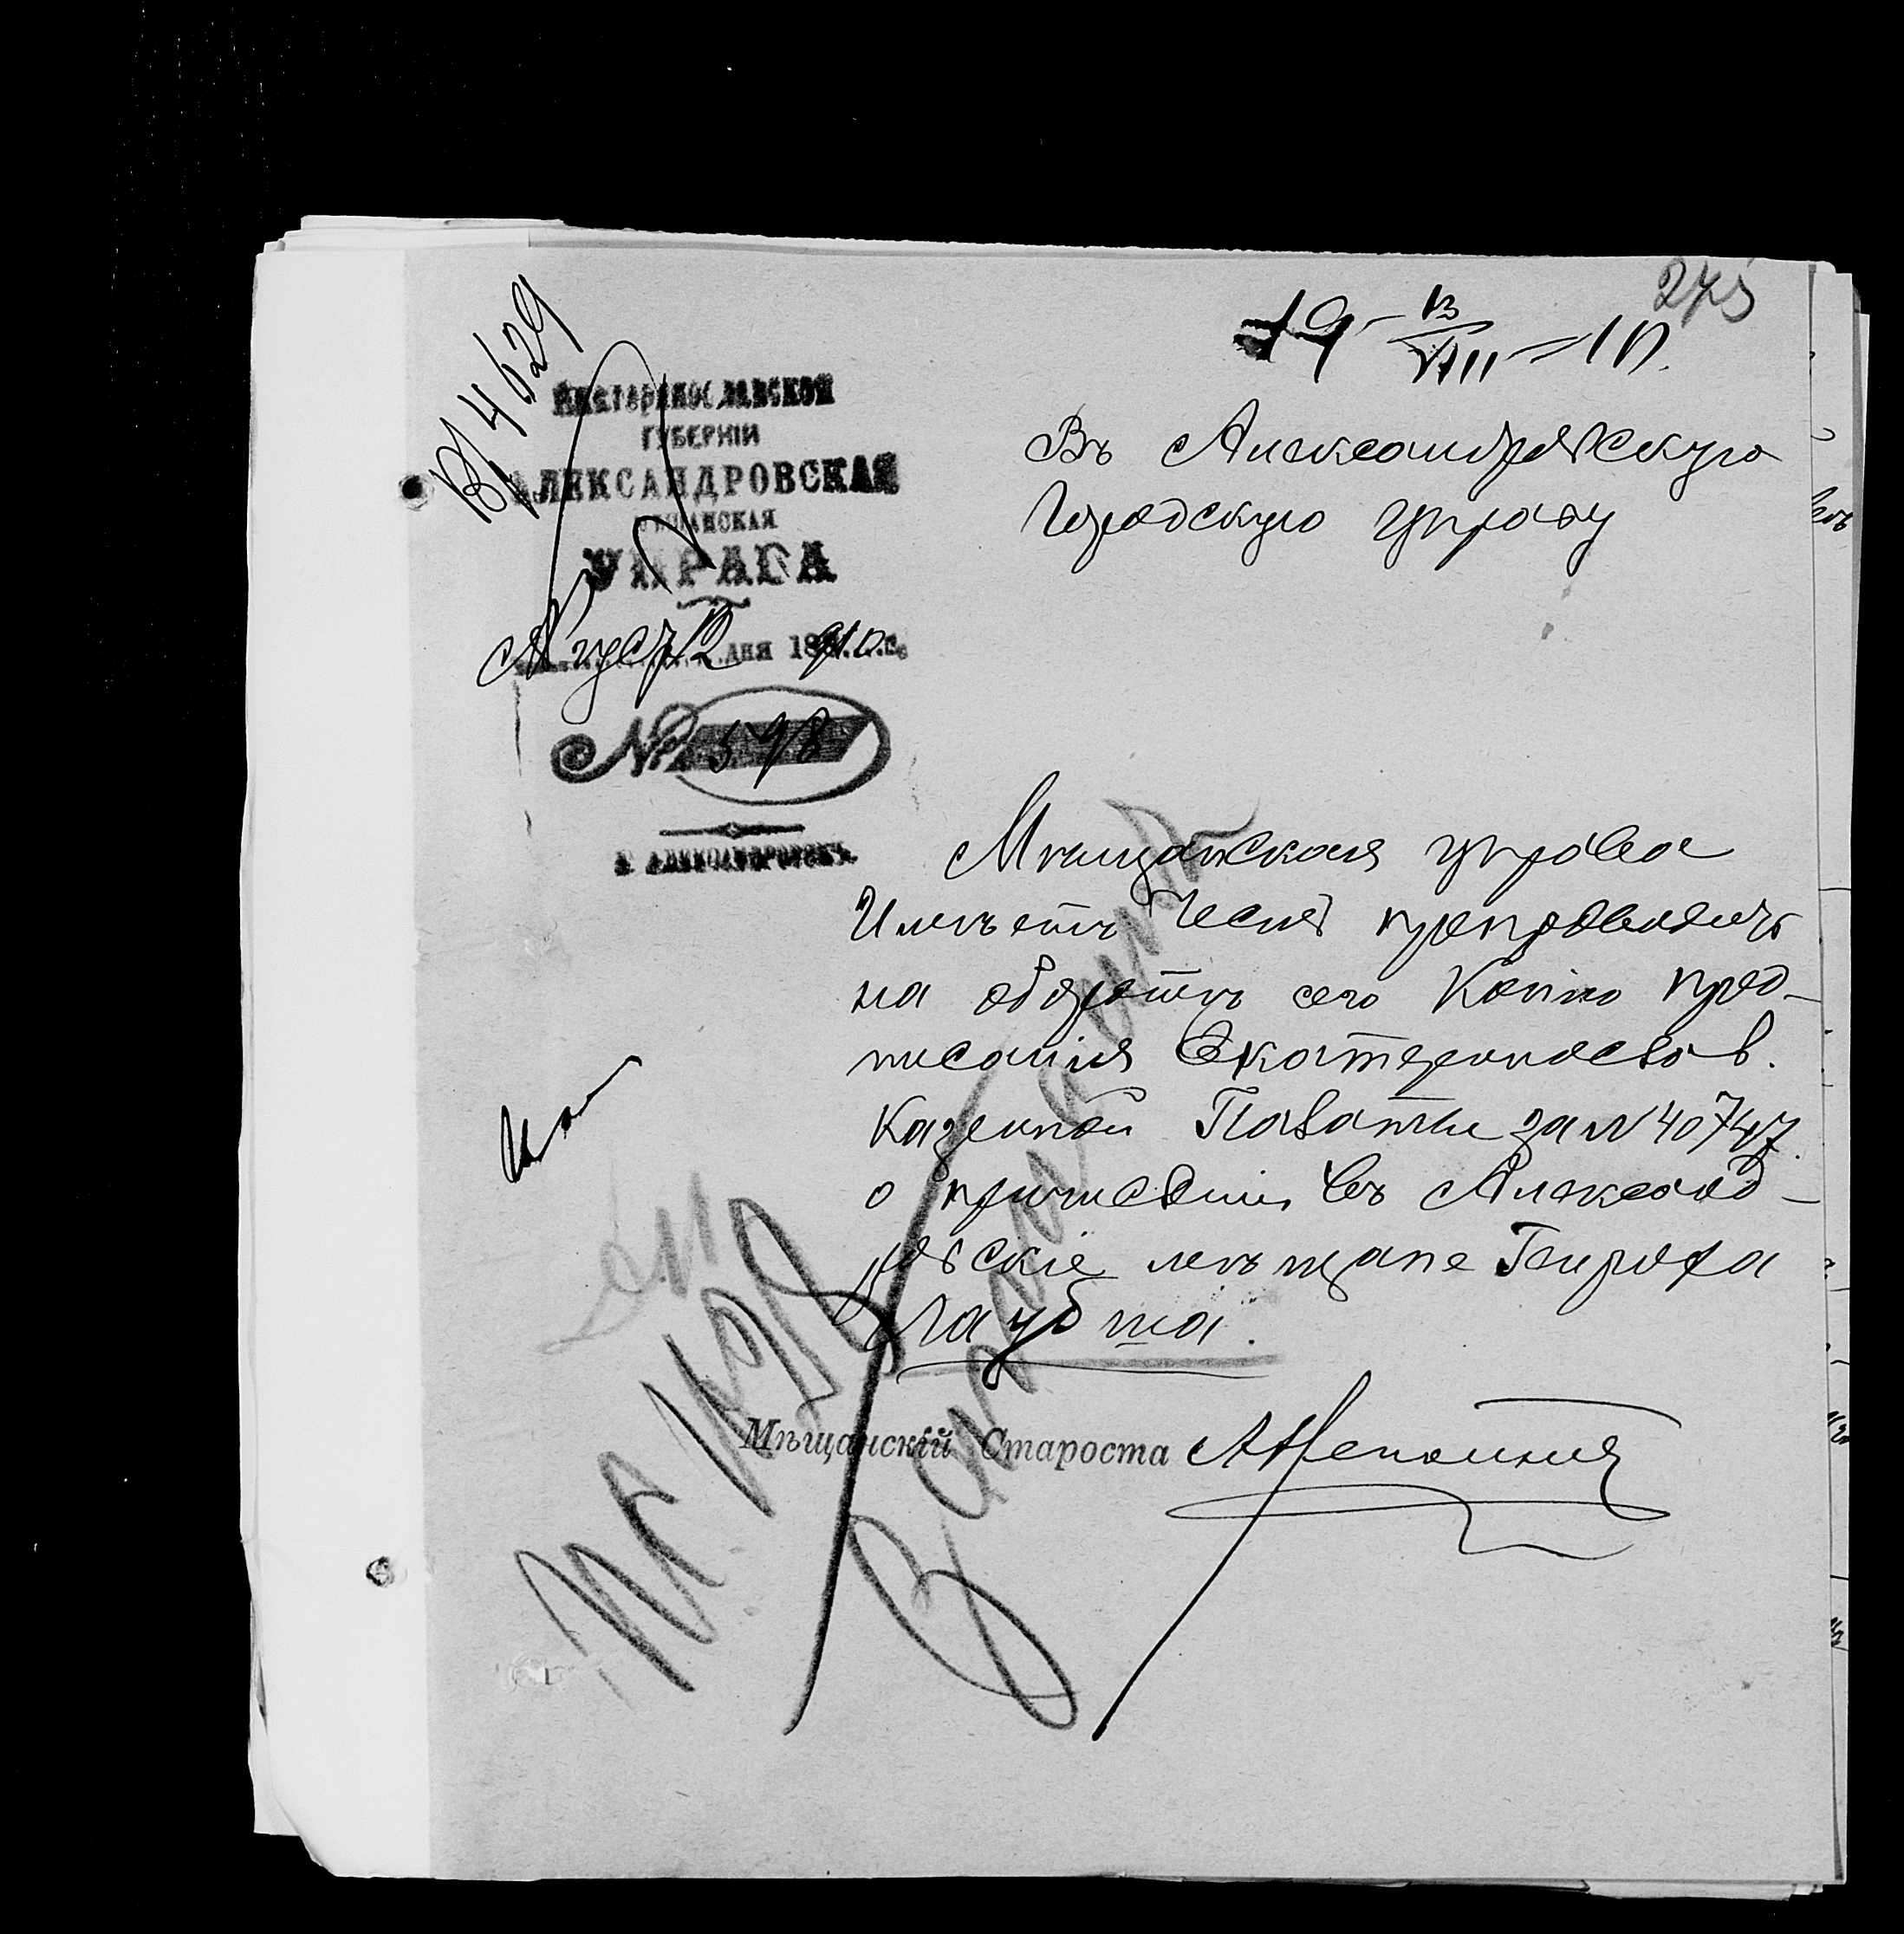 275
19 – 13/VIII – 10.
Вх 4629
Екатеринославской
ГУБЕРНІИ
АЛЕКСАНДРОВСКАЯ
МѢЩАНСКАЯ
УПРАВА
Август 12 дня 1910 г.
№ 598
Г. АЛЕКСАНДРОВСКЪ.
Въ Александровскую
Городскую управу
Мѣщанская управа
Имѣетъ честь препроводить
на оборотѣ сего Копію пред-
писанія Екатеринослав.
Казенной Палаты за № 40747
о причисленіи въ Александ-
ровскіе мѣщане Генриха
Мѣщанскій Староста